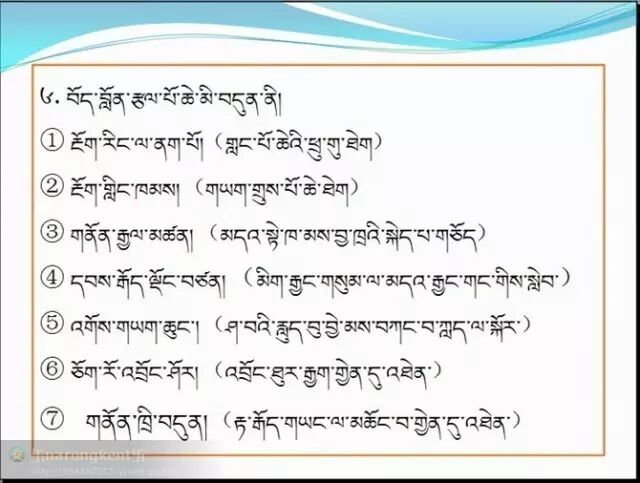 ༦. བོད་བློན་རྩལ་པོ་ཆེ་མི་བདུན་ནི།
① རྔོག་རིང་ལ་ནག་པོ། (གླང་པོ་ཆེའི་ཕྲུ་གུ་ཐེག)
② རྔོག་གླིང་ཁམས། (གཡག་གྲུས་པོ་ཆེ་ཐེག)
③ གནོན་རྒྱལ་མཚན། (མདའ་སྟེ་ཁ་མས་བྱ་ཁྲའི་སྐེད་པ་གཅོད)
④ དབས་རྒོད་ལྡོང་བཙན། (མིག་རྒྱང་གསུམ་ལ་མདའ་རྒྱང་གང་གིས་སླེབ་)
⑤ འགོས་གཡག་ཆུང་། (ཤ་བའི་རླུད་བུ་བྱེ་མས་བཀང་བ་ཀླད་ལ་སྐོར་)
⑥ ཅོག་རོ་འབྲོང་ཤོར། (འབྲོང་ཐུར་རྒྱག་གྱེན་དུ་འཐེན་)
⑦ གནོན་ཁྲི་བདུན། (རྟ་རྒོད་གཡང་ལ་མཆོང་བ་གྱེན་དུ་འཐེན་)